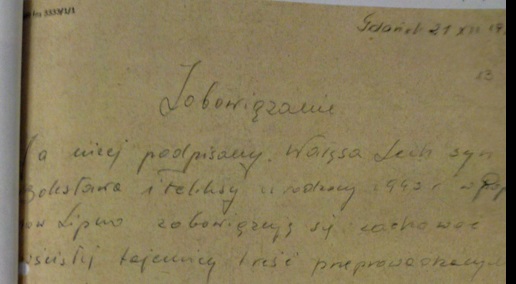 3333/1/1
Gdańsk 21 XII 19
13
Zobowiązanie
Ja niżej podpisany, Wałęsa Lech syn
Bolesława i Feliksy urodzony 1943 r w Pop
Lipno zobowiązuję się zachować
w ścisłej tajemnicy treść przeprowadzonych